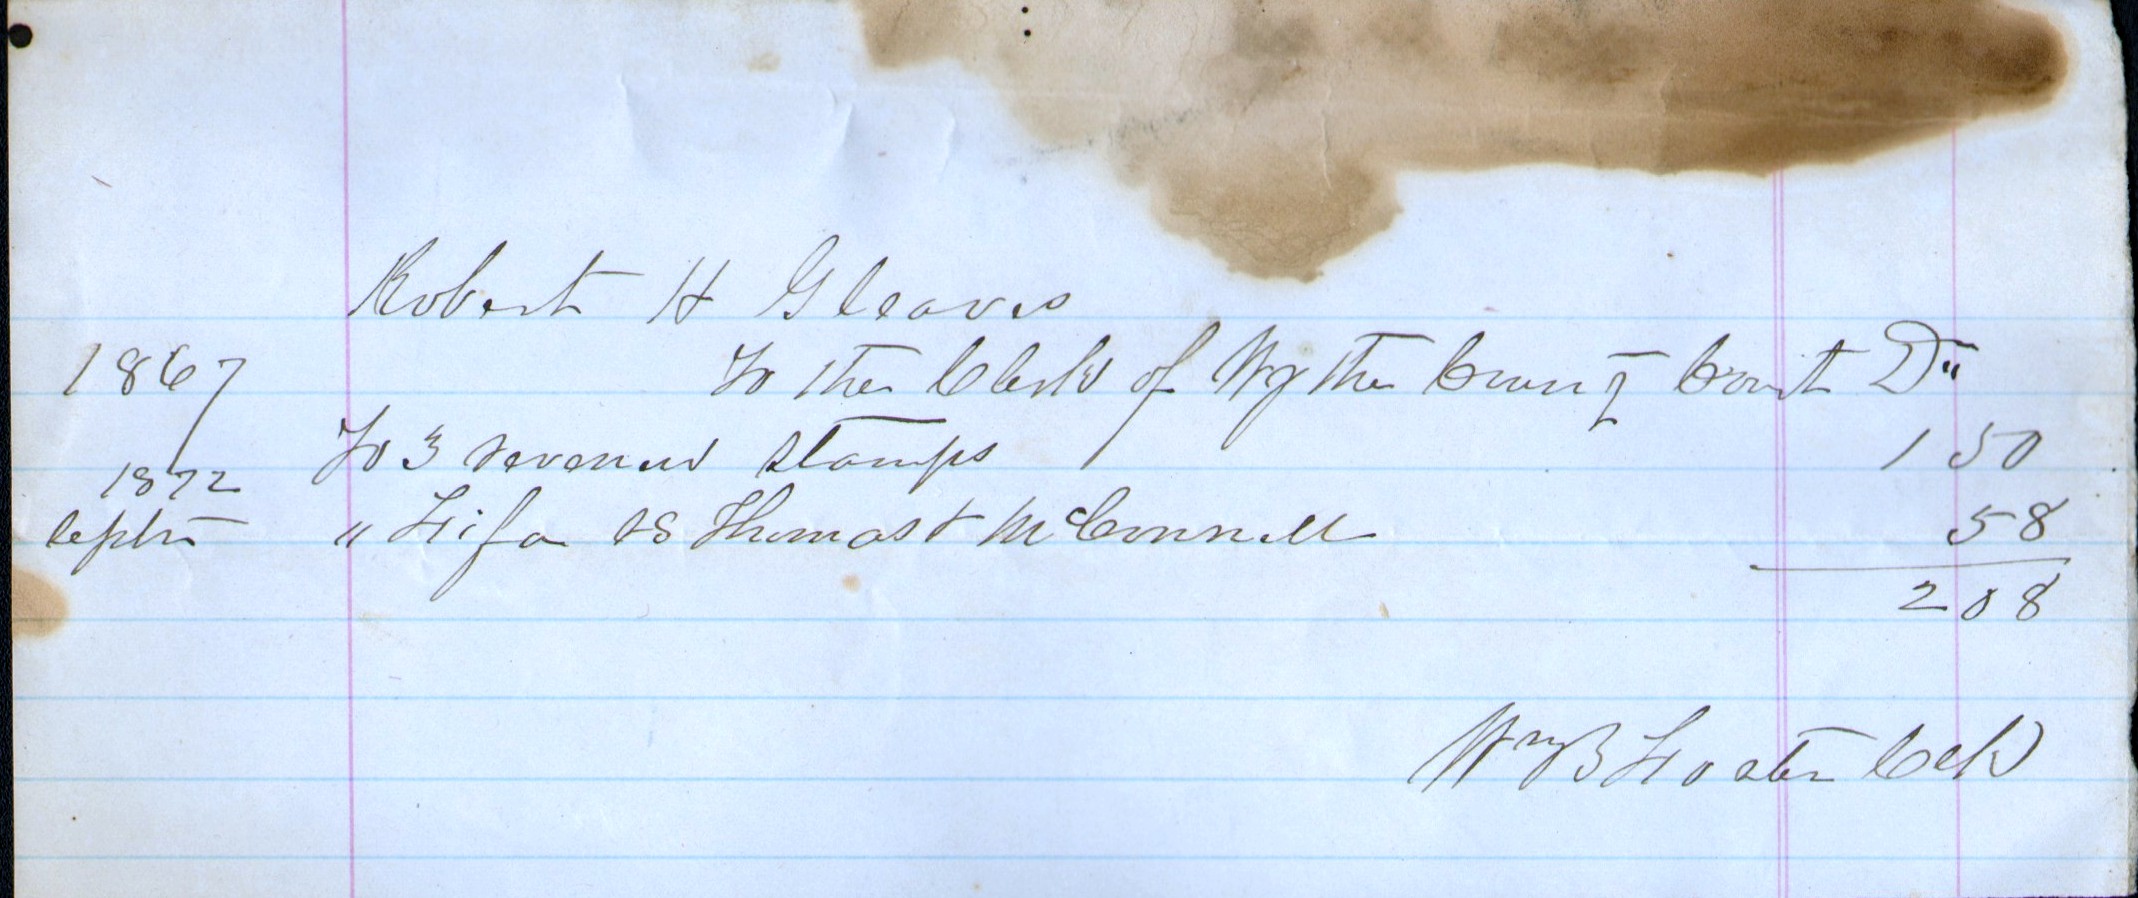 Robert H Gleaves
1867 To the Clerk of Wythe County Court Dr
To 3 revenue Stamps 1 50
1872
Septr " Fifa vs Thomas & McConnell 58
2 08
Wm B Foster Clk